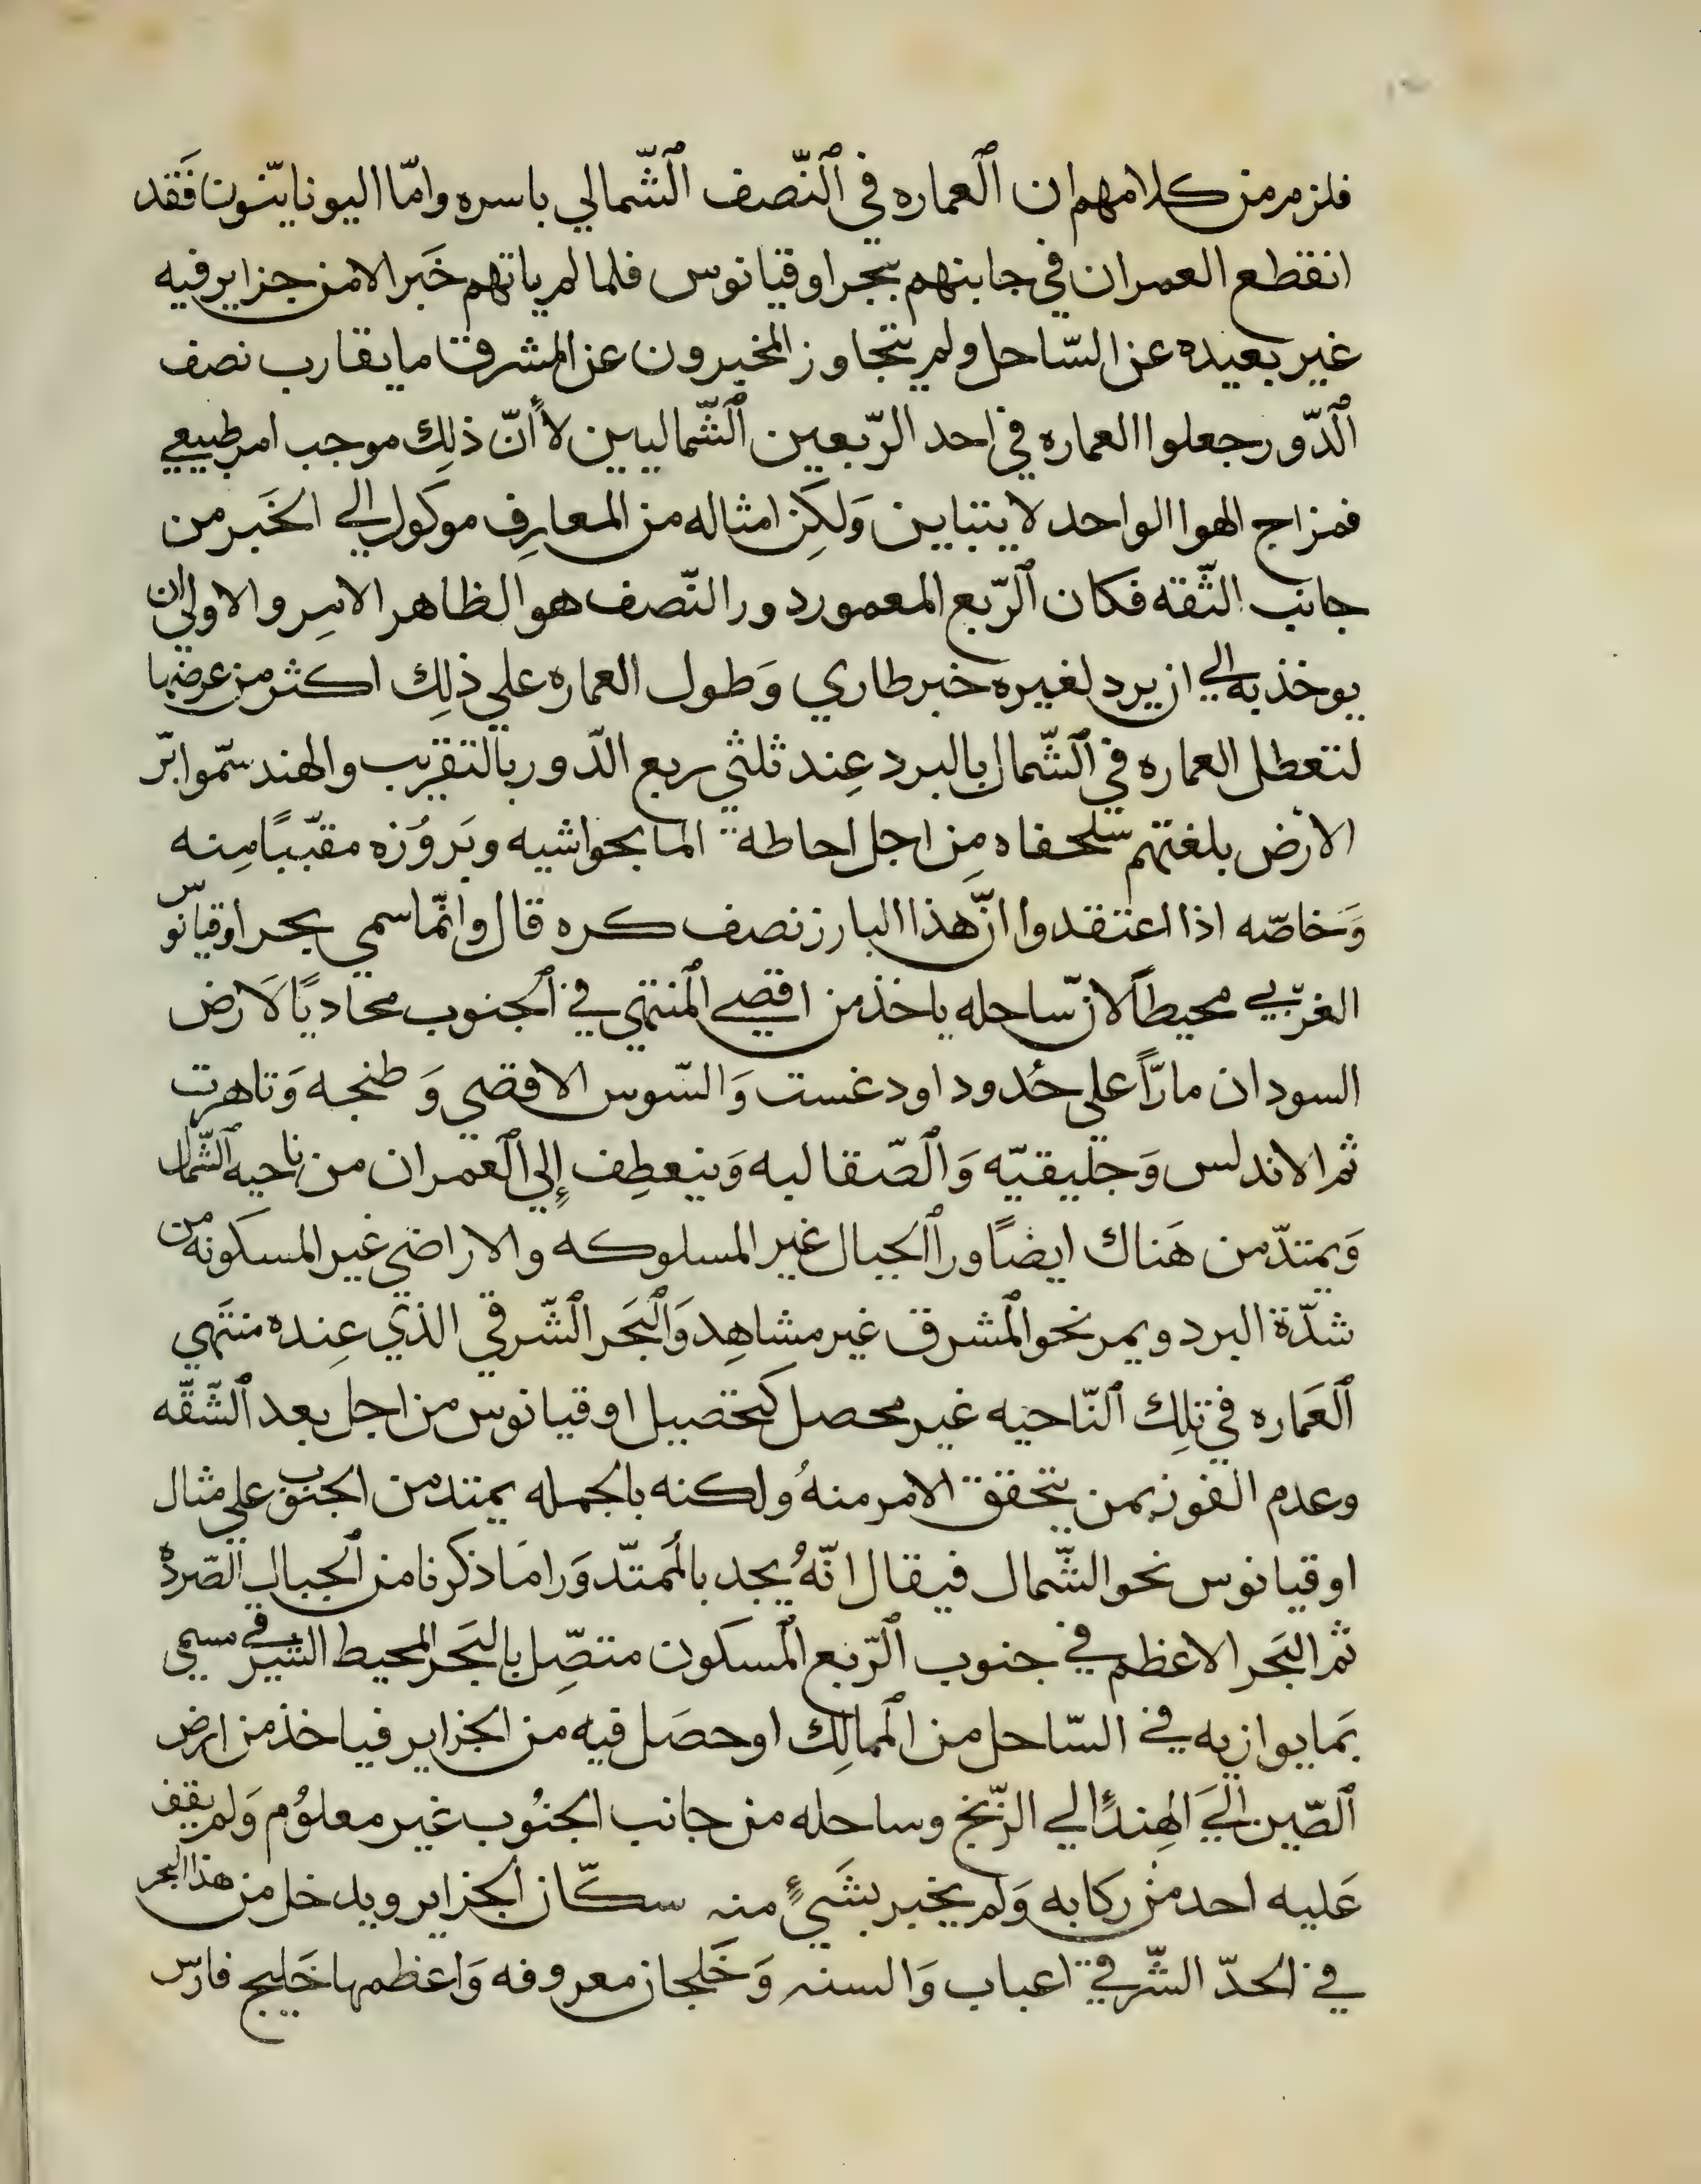 فلزم من كلامهم ان ٱلعماره في ٱلنّصف ٱلشّمالي باسره وامّا اليونانيّون فَقد
انقطع العمران في جانبهم ببحر اوقيانوس فلما لم ياتهم خَبر الا من جزاير فيه
غير بعيده عن السّاحل ولم يتجاوز المخبرون عن المشرق ما يقارب نصف
ٱلدّور جعلوا العماره في احد الرّبعين ٱلشّماليين لا أنّ ذلِك موجب امر طبيعي
فمزاج الهوا الواحد لا يتباين وَلكِن امثاله من المعارِف موكول الي الخَبر من
جانِب الثّقه فكان ٱلرّبع المعمور دور النّصف هو الظاهر الامر والاولي ان
يوخذ به الي ان يرد لغيره خبر طاري وَطول العماره علي ذلِك اكثر من عرضها
لتعطل العماره في ٱلشّمال بالبرد عِند ثلثي ربع الدّور بالتقريب والهند سمّوا برّ
الارْض بلغتهم سلحفاه مِن اجل احاطة الما بحواشيه وبَروُزه مقبّبًا مِنه
وَخاصّه اذا اعتقدوا انّ هذا البارز نصف كره قال وانّما سمي بحر اوقيانوس
الغربي محيطاً لانّ ساحله ياخذ من اقصي ٱلمنتهي في ٱلجنوب محاديًا لاَرض
السودان مارّاً علي حُدود اودغست وَالسّوس الاقصي وَطنجه وَتاهرت
ثم الاندلس وَجليقيّه وَٱلصّقالبه وَينعطِف إلي ٱلعمران من ناحيه ٱلشّمال
وَيمتدّ من هَناك ايضًا ورا ٱلجبال غير المسلوكه والاراضي غير المسكونه من
شدّة البرد ويمر نحو ٱلمشرق غير مشاهِد وَٱلبَحر ٱلشّرقي الذي عِنده منتَهي
ٱلعَماره في تلِك ٱلنّاحيه غير محصل كَتحصيل اوقيانوس من اجل بعد ٱلشّقّه
وعدم الفوز بمن يتحقق الامر منهُ ولكنه بالجمله يمتد من الجنوب علي مثال
اوقيانوس نحو الشّمال فيقال انّهُ يجد بالمُمتدّ وَرا مَا ذكرنا من ٱلجبال الصّرده
ثم البَحر الاعظم في جنوب ٱلرّبع ٱلمسكون متصِّل بالبَحر المحيط الشرقي مسمي
بمَا يوازيه في السّاحل من ٱلممالِك او حصَل فيه من الجزاير فياخذ من ارض
ٱلصّين الَي الهِند الي الزّنج وساحله من جانب الجنُوب غير معلوُم وَلم يقف
عَليه احد من ركابه وَلم يخبر بشَيءٍ منه سكّان ٱلجزاير ويدخل من هذا البحر
في الحدّ الشّرقي اعباب وَالسنه وَخَلجان معروفه وَاعظمها خَليج فارس